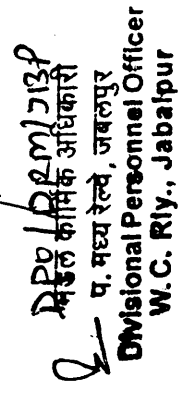 DPO/DRM/JBP
मंडल कार्मिक अधिकारी
प. मध्य रेल्वे, जबलपुर
Divisional Personnel Officer
W. C. Rly., Jabalpur